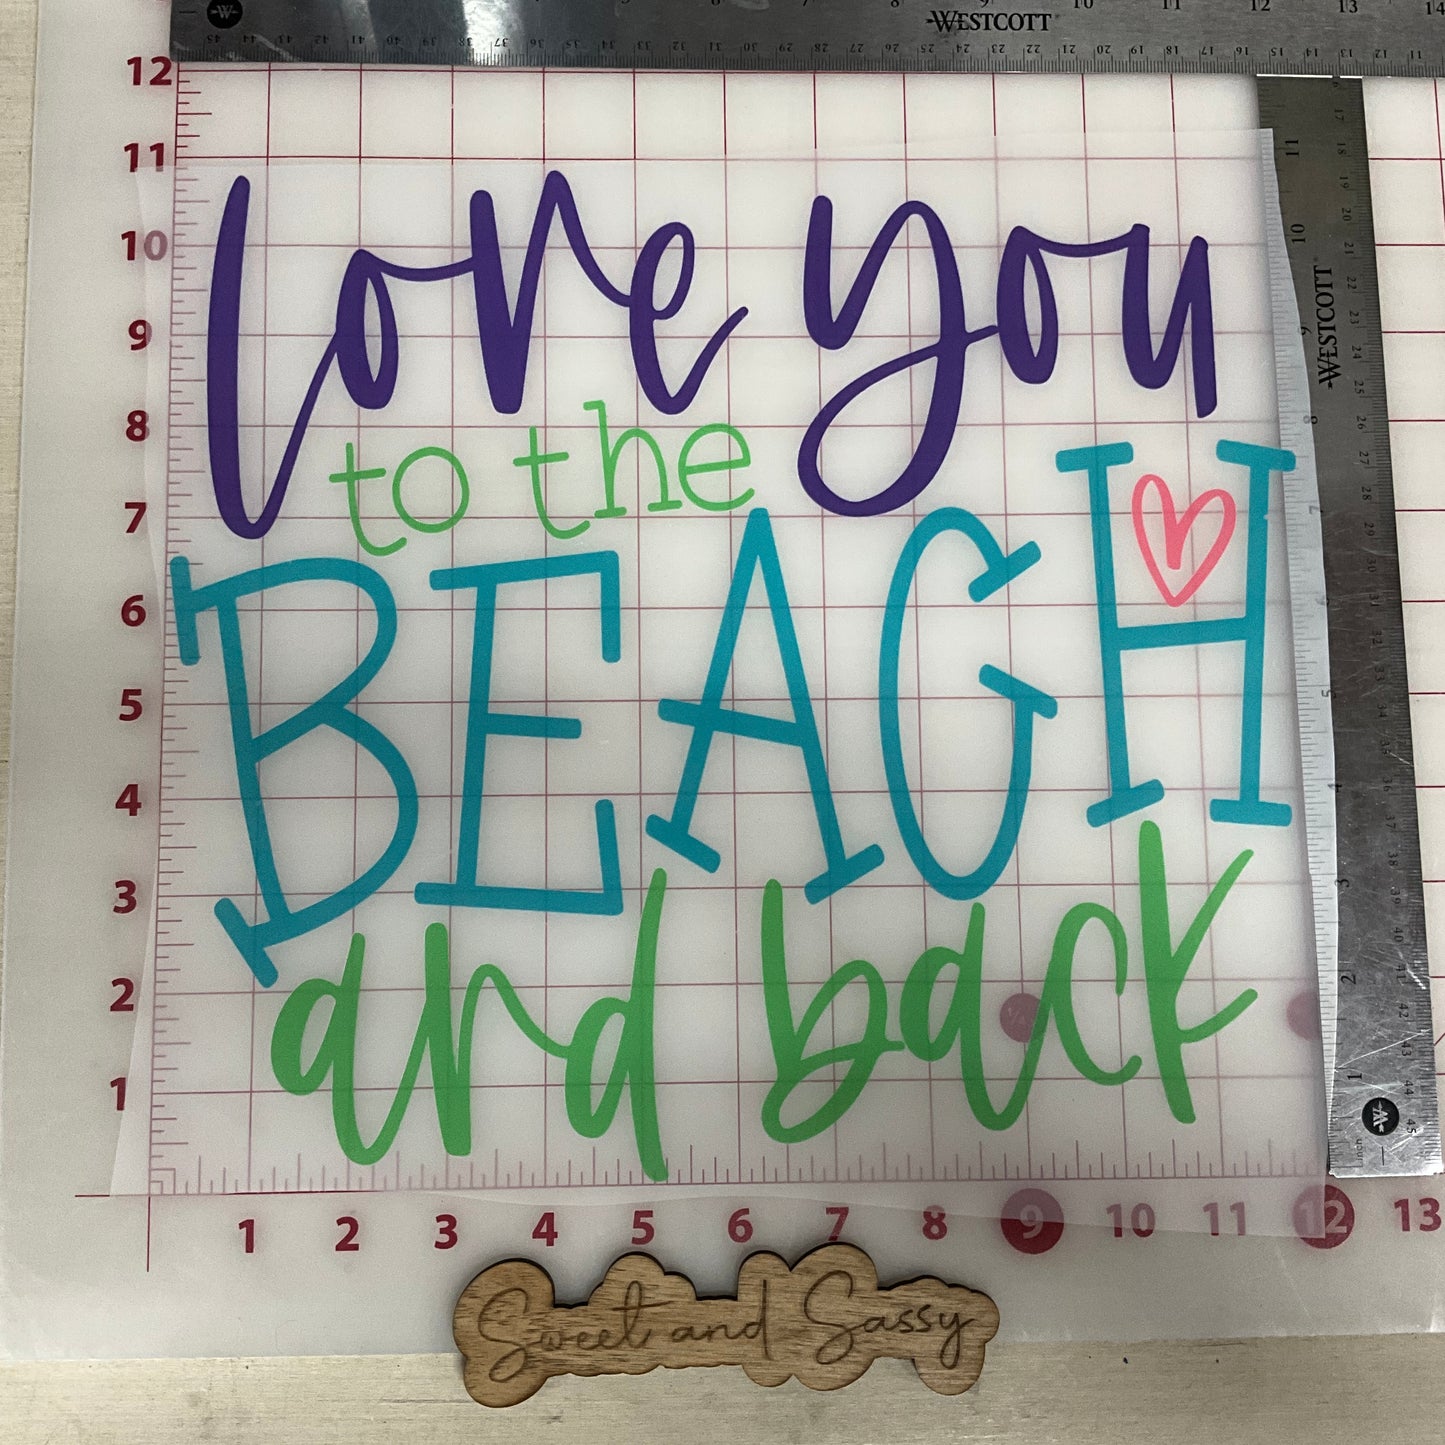 WESTCOTT
12
11
10
9
8
7
6
5
4
3
2
1
love you
to the
BEACH
and back
WESTCOTT
1 2 3 4 5 6 7 8 9 10 11 12 13
Sweet and Sassy